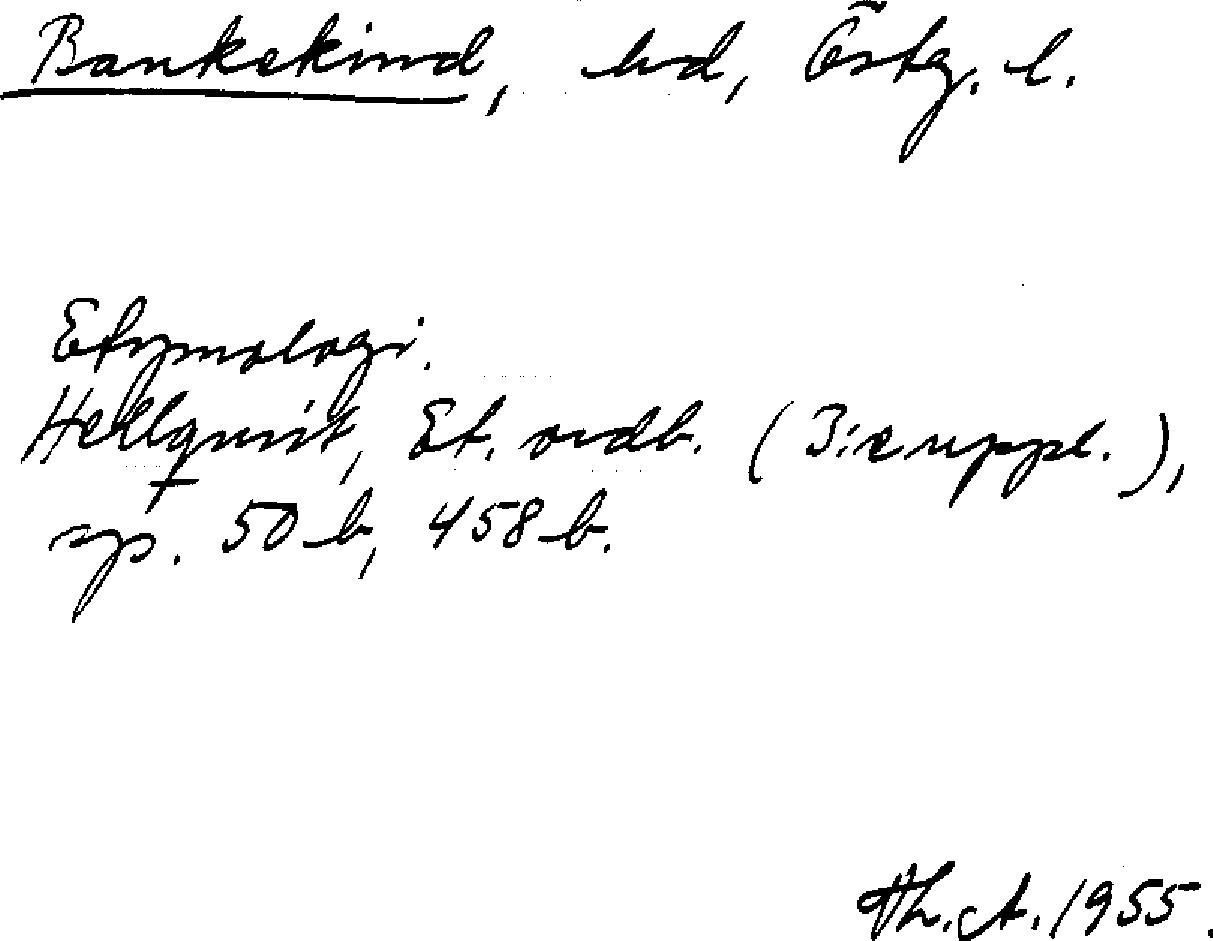 Bankekind, hd, Östg. l.
Etymologi.
Hellquist, Et. ordb. (3:e uppl.),
sp. 50 b, 458 b.
Th. A. 1955.